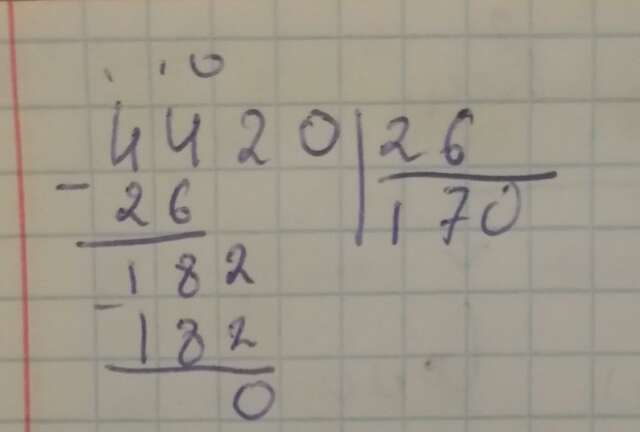 0
4420 26
- 26 170
182
- 182
0